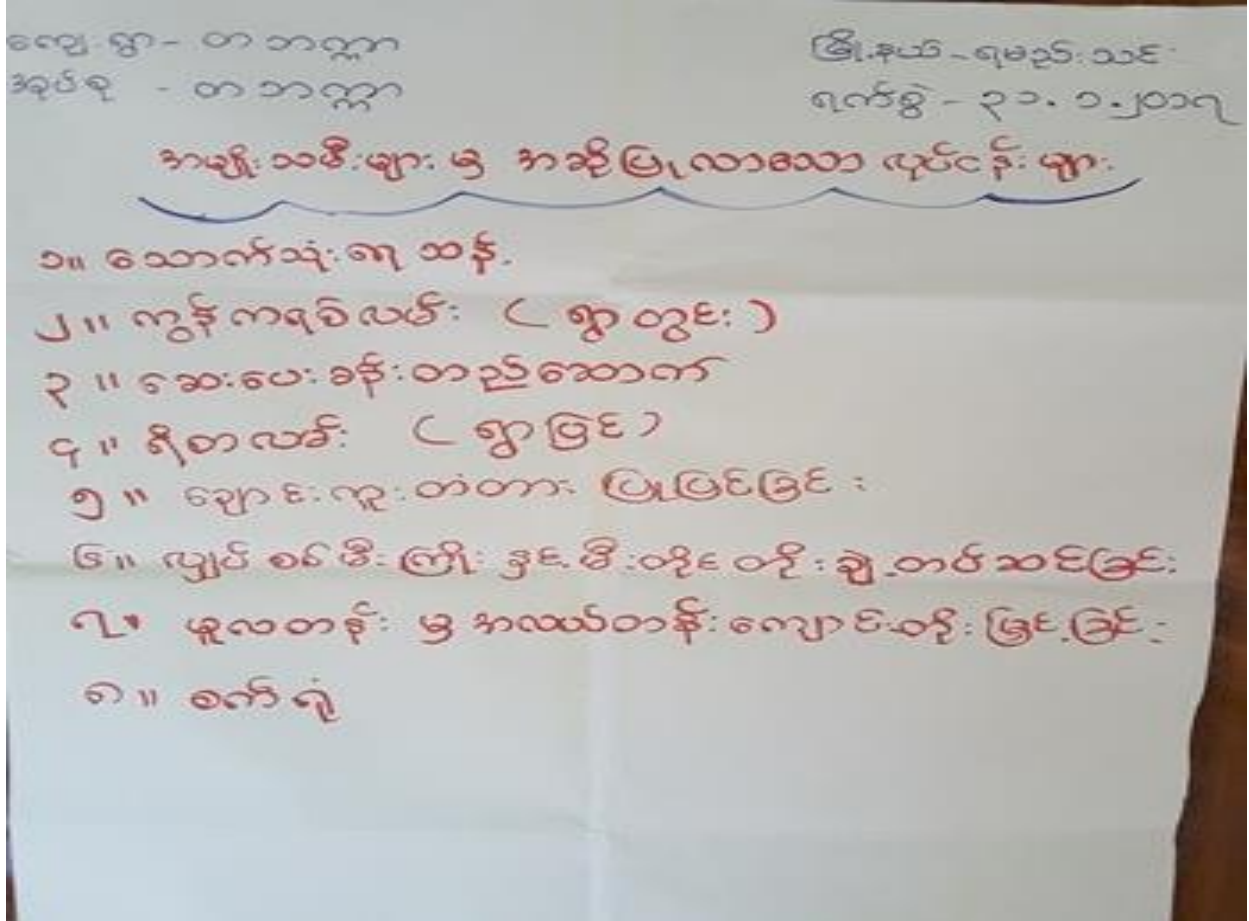 ကျေးရွာ - တဘက္ကာ
အုပ်စု - တဘက္ကာ
မြို့နယ် - ရမည်းသင်း
ရက်စွဲ - ၃၁.၁.၂၀၁၇
အမျိုးသမီးများမှ အဆိုပြုလာသော လုပ်ငန်းများ
၁။ သောက်သုံးရေသန့်
၂။ ကွန်ကရစ်လမ်း (ရွာတွင်း)
၃။ ဆေးပေးခန်းတည်ဆောက်
၄။ ရိုးတလမ်း (ရွာပြင်)
၅။ ချောင်းကူးတံတား ပြုပြင်ခြင်း
၆။ လျှပ်စစ်မီးကြိုးနှင့်မီးတိုင်တိုးချဲ့တပ်ဆင်ခြင်း
၇။ မူလတန်းမှအလယ်တန်းကျောင်းတိုးမြှင့်ခြင်း
၈။ စက်ရုံ